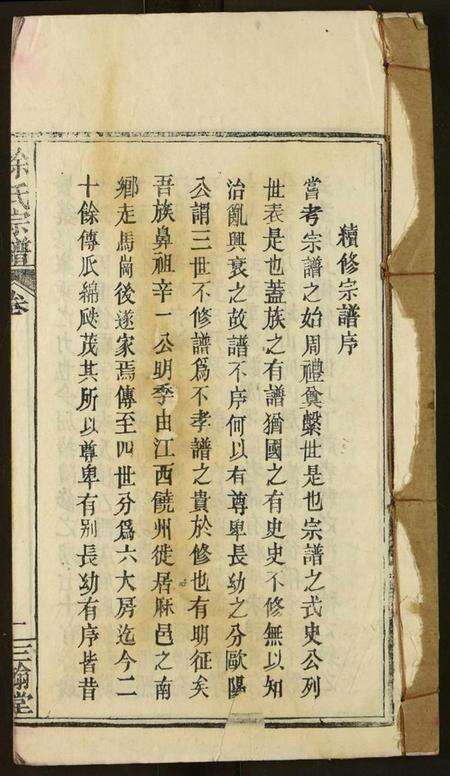 續修宗譜序
嘗考宗譜之始周禮奠繫世是也宗譜之式史公列
世表是也蓋族之有譜猶國之有史史不修無以知
治亂興衰之故譜不序何以有尊卑長幼之分歐陽
公謂三世不修譜爲不孝譜之貴於修也有明征矣
吾族鼻祖辛一公明季由江西饒州徙居麻邑之南
鄉走馬崗後遂家焉傳至四世分爲六大房迄今二
十餘傳瓜綿瓞茂其所以尊卑有别長幼有序皆昔
氏宗譜
卷
一
三翰堂